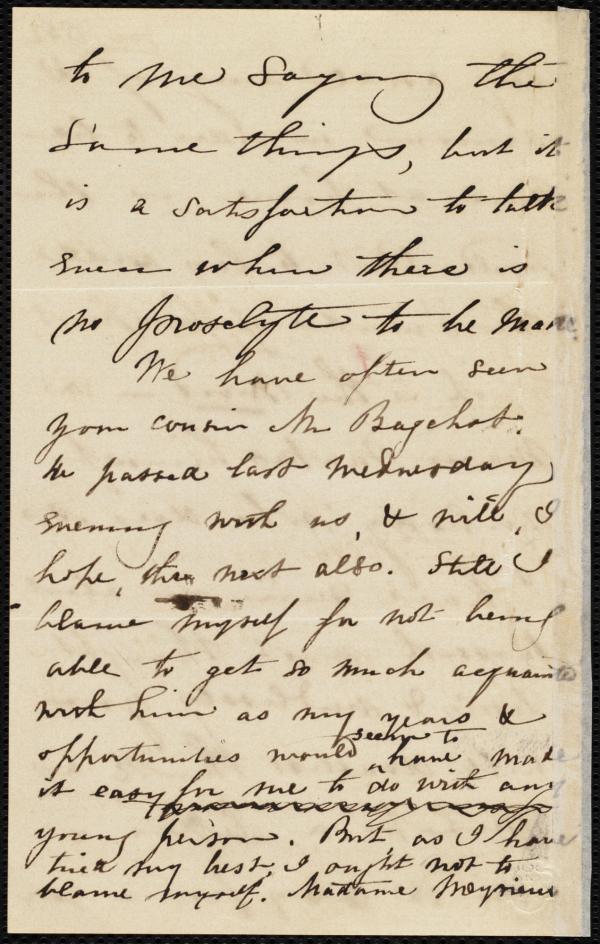 to me saying the
same things, but it
is a satisfaction to talk
even when there is
no proselyte to be made
We have often seen
your cousin Mr Bagehot.
He passed last Wednesday
evening with us, & will, I
hope, the next also. Still I
blame myself for not being
able to get so much acquainted
with him as my years &
opportunities would seem to have made
it easy for me to do with any
young person. But, as I have
tried my best, I ought not to
blame myself. Madame